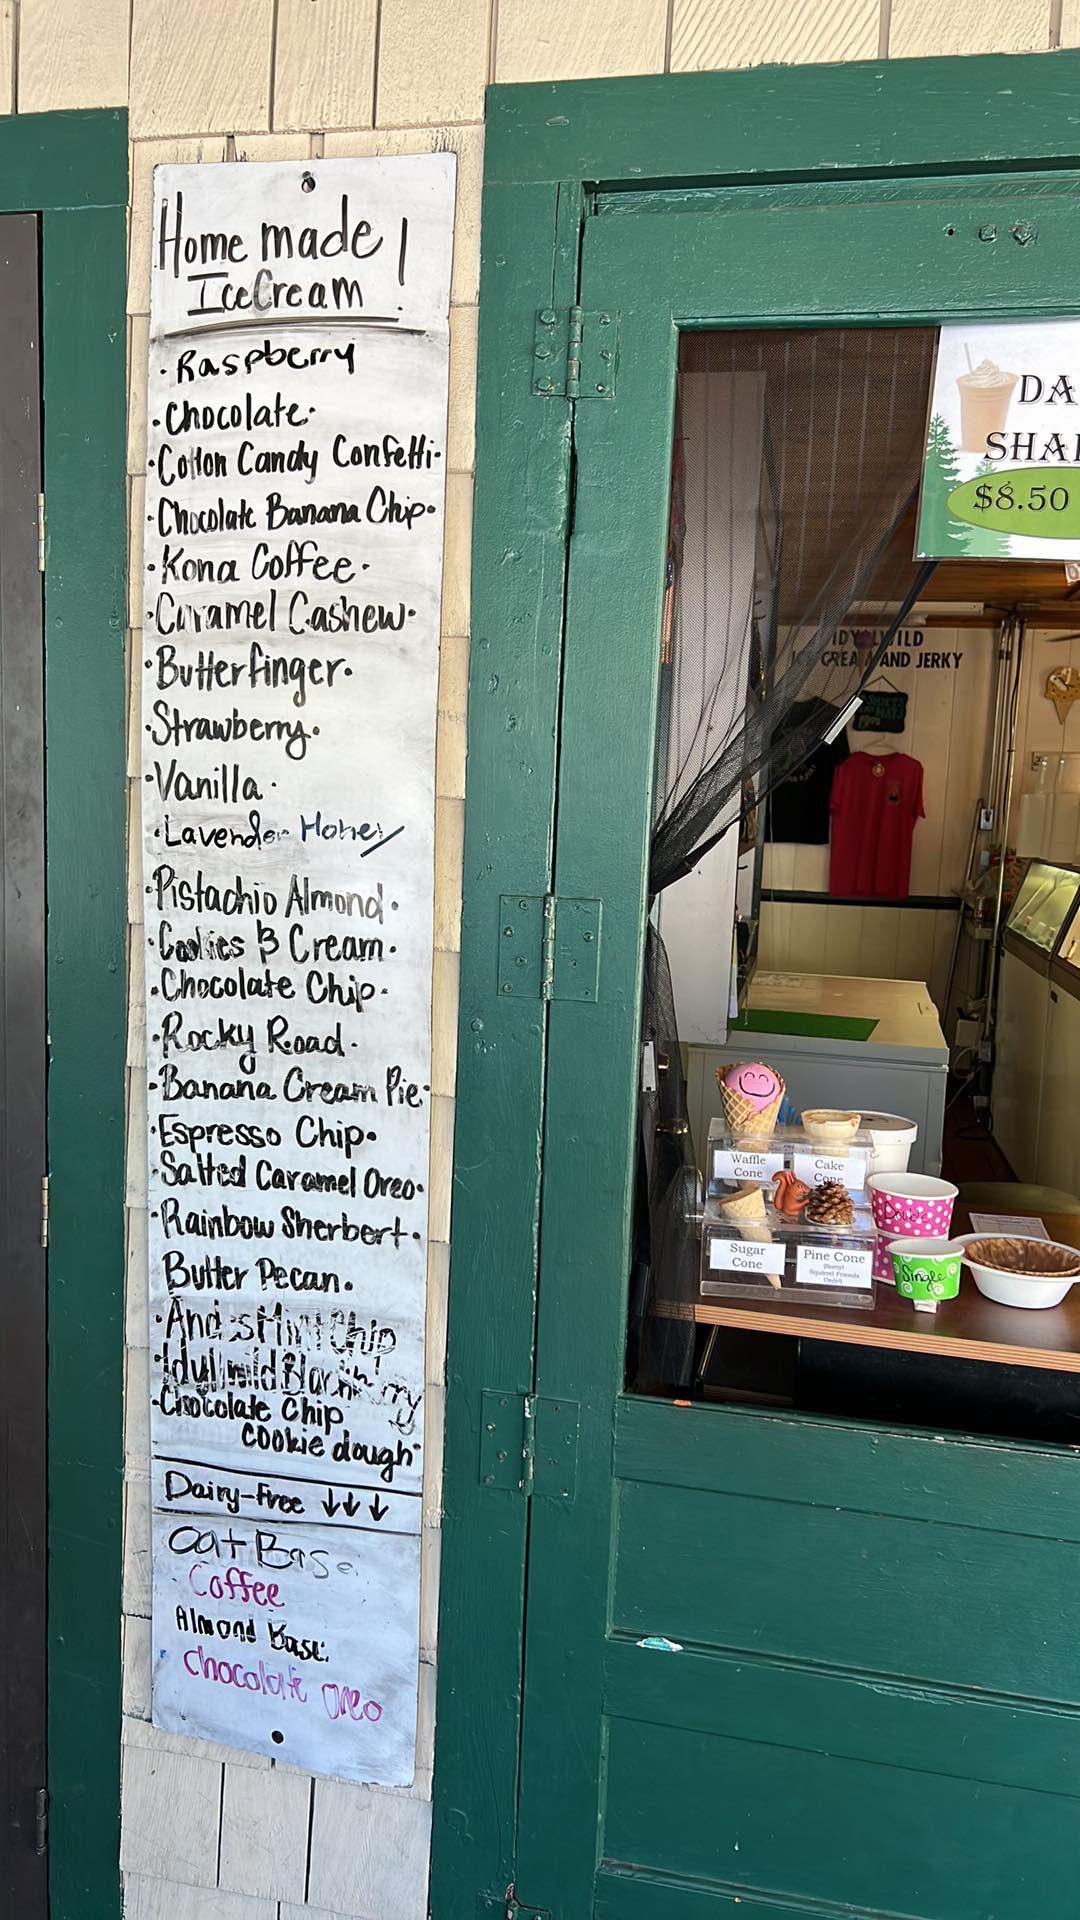 Home made !
Ice Cream !
· Raspberry
· Chocolate ·
· Cotton Candy Confetti ·
· Chocolate Banana Chip ·
· Kona Coffee ·
· Caramel Cashew ·
· Butterfinger ·
· Strawberry ·
· Vanilla ·
· Lavender Honey
· Pistachio Almond ·
· Cookies & Cream ·
· Chocolate Chip ·
· Rocky Road ·
· Banana Cream Pie ·
· Espresso Chip ·
· Salted Caramel Oreo ·
· Rainbow Sherbert ·
Butter Pecan ·
· Andes Mint Chip
· Idyllwild Blackberry
· Chocolate Chip
cookie dough
Dairy-Free ↓↓↓
Oat Base
Coffee
Almond Base:
Chocolate Oreo
DA
SHA
$8.50
IDYLLWILD
ICE CREAM AND JERKY
Waffle
Cone
Cake
Cone
Sugar
Cone
Pine Cone
(Sorry!
Squirrel Friends
Only!)
Double
Single